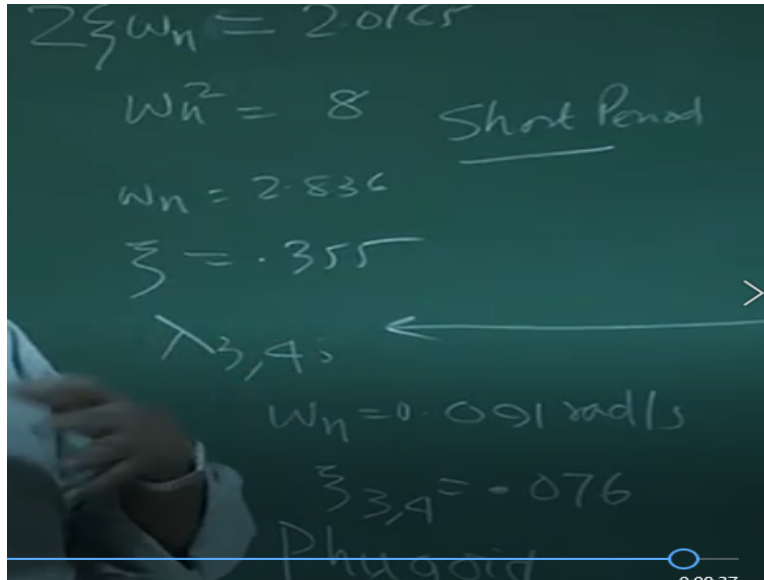 2ξωn = 2.0165
ωn² = 8
Short Period
ωn = 2.836
ξ = .355
λ3,4:
ωn = 0.091 rad/s
ξ3,4 = .076
Phugoid
0:00:37